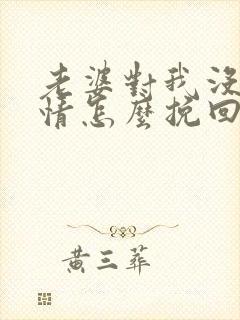 老婆對我沒
情怎麼挽回
黃三葬